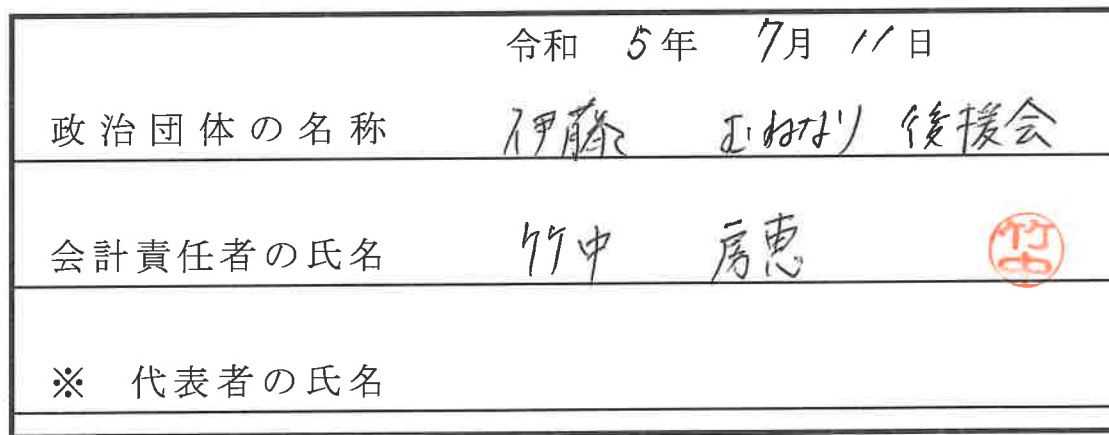 令和 5年 7月 11日
政治団体の名称 伊藤 むねなり 後援会
会計責任者の氏名 竹中 房恵 竹中
※ 代表者の氏名